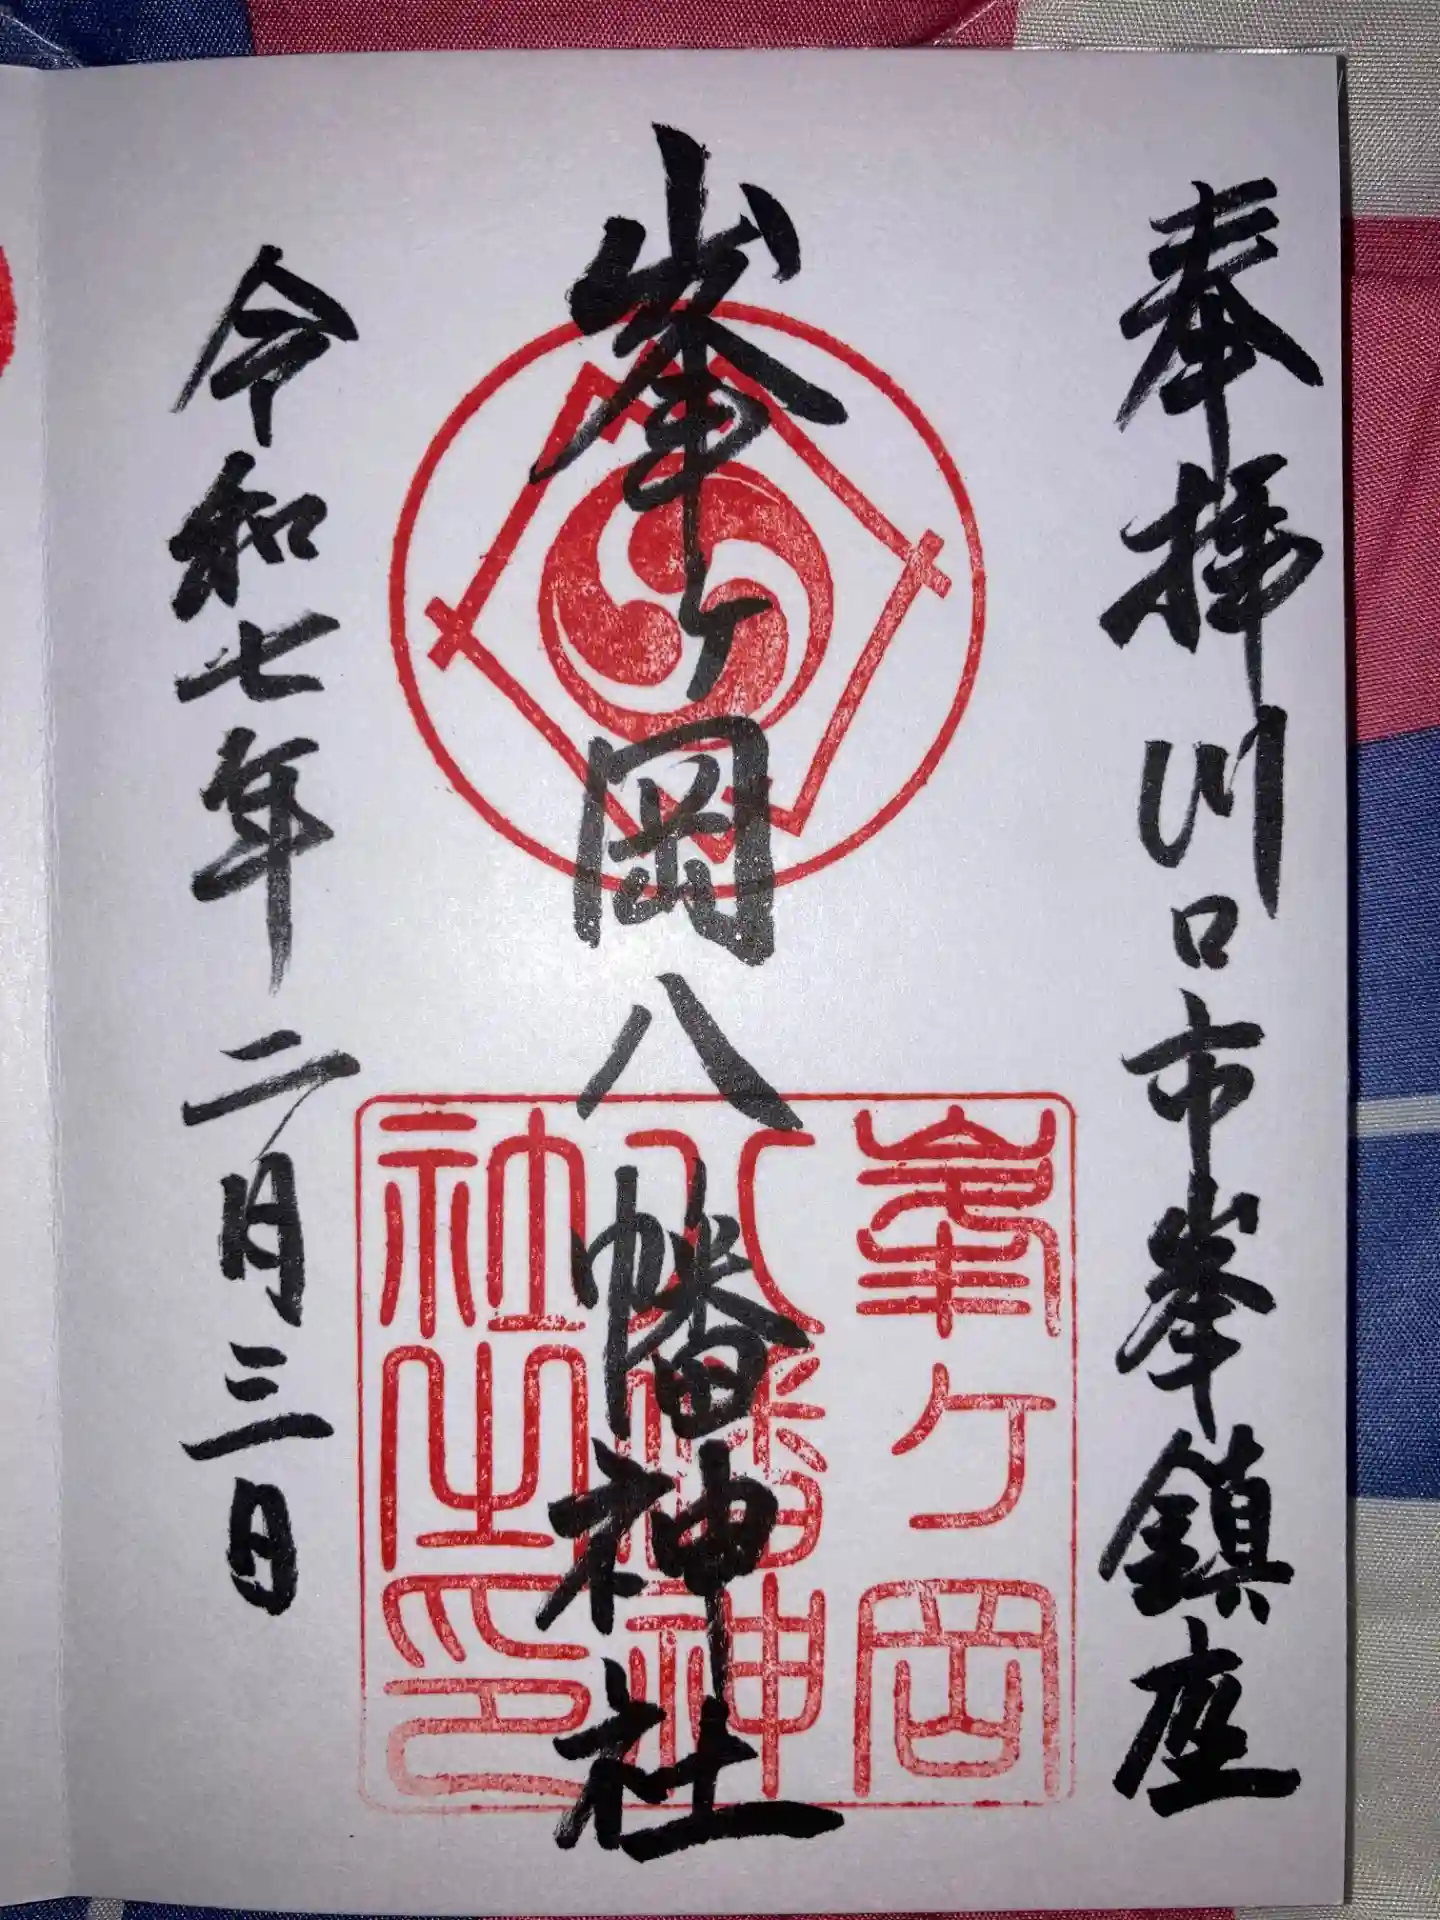 奉拝川口市峯鎮座
峯ヶ岡八幡神社
令和七年二月三日
峯ヶ岡
八幡神
社之印